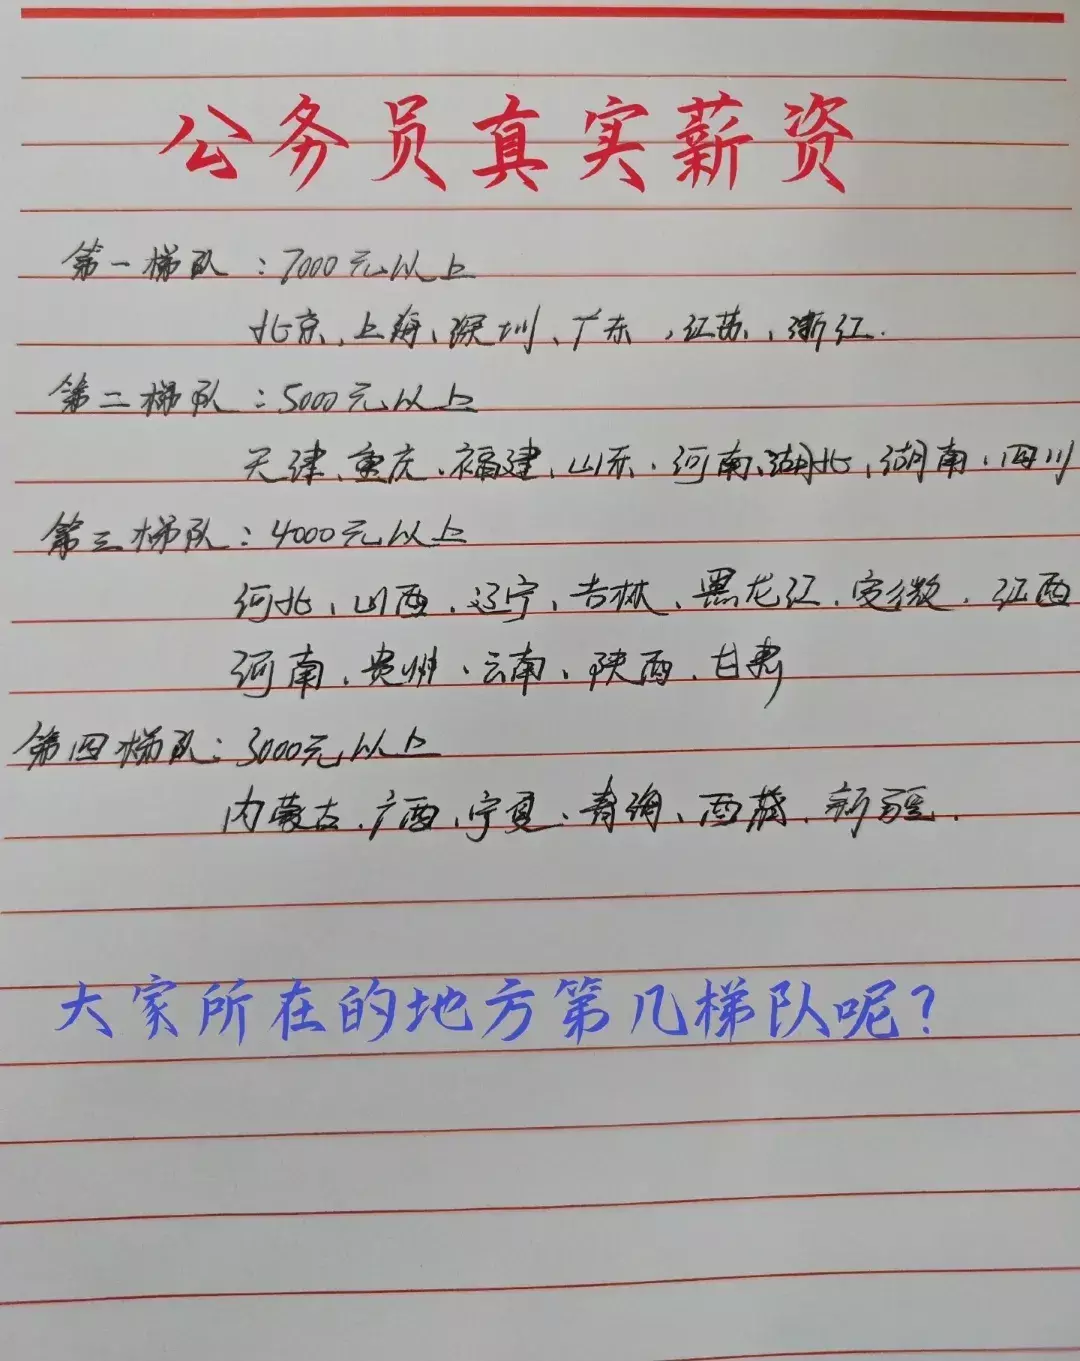 公务员真实薪资
第一梯队：7000元以上
北京、上海、深圳、广东，江苏、浙江.
第二梯队：5000元以上
天津、重庆、福建、山东、河南、湖北，湖南、四川
第三梯队：4000元以上
河北、山西、辽宁、吉林、黑龙江、安徽、江西
河南、贵州、云南、陕西、甘肃
第四梯队：3000元以上
内蒙古、广西、宁夏、青海、西藏、新疆.
大家所在的地方第几梯队呢？